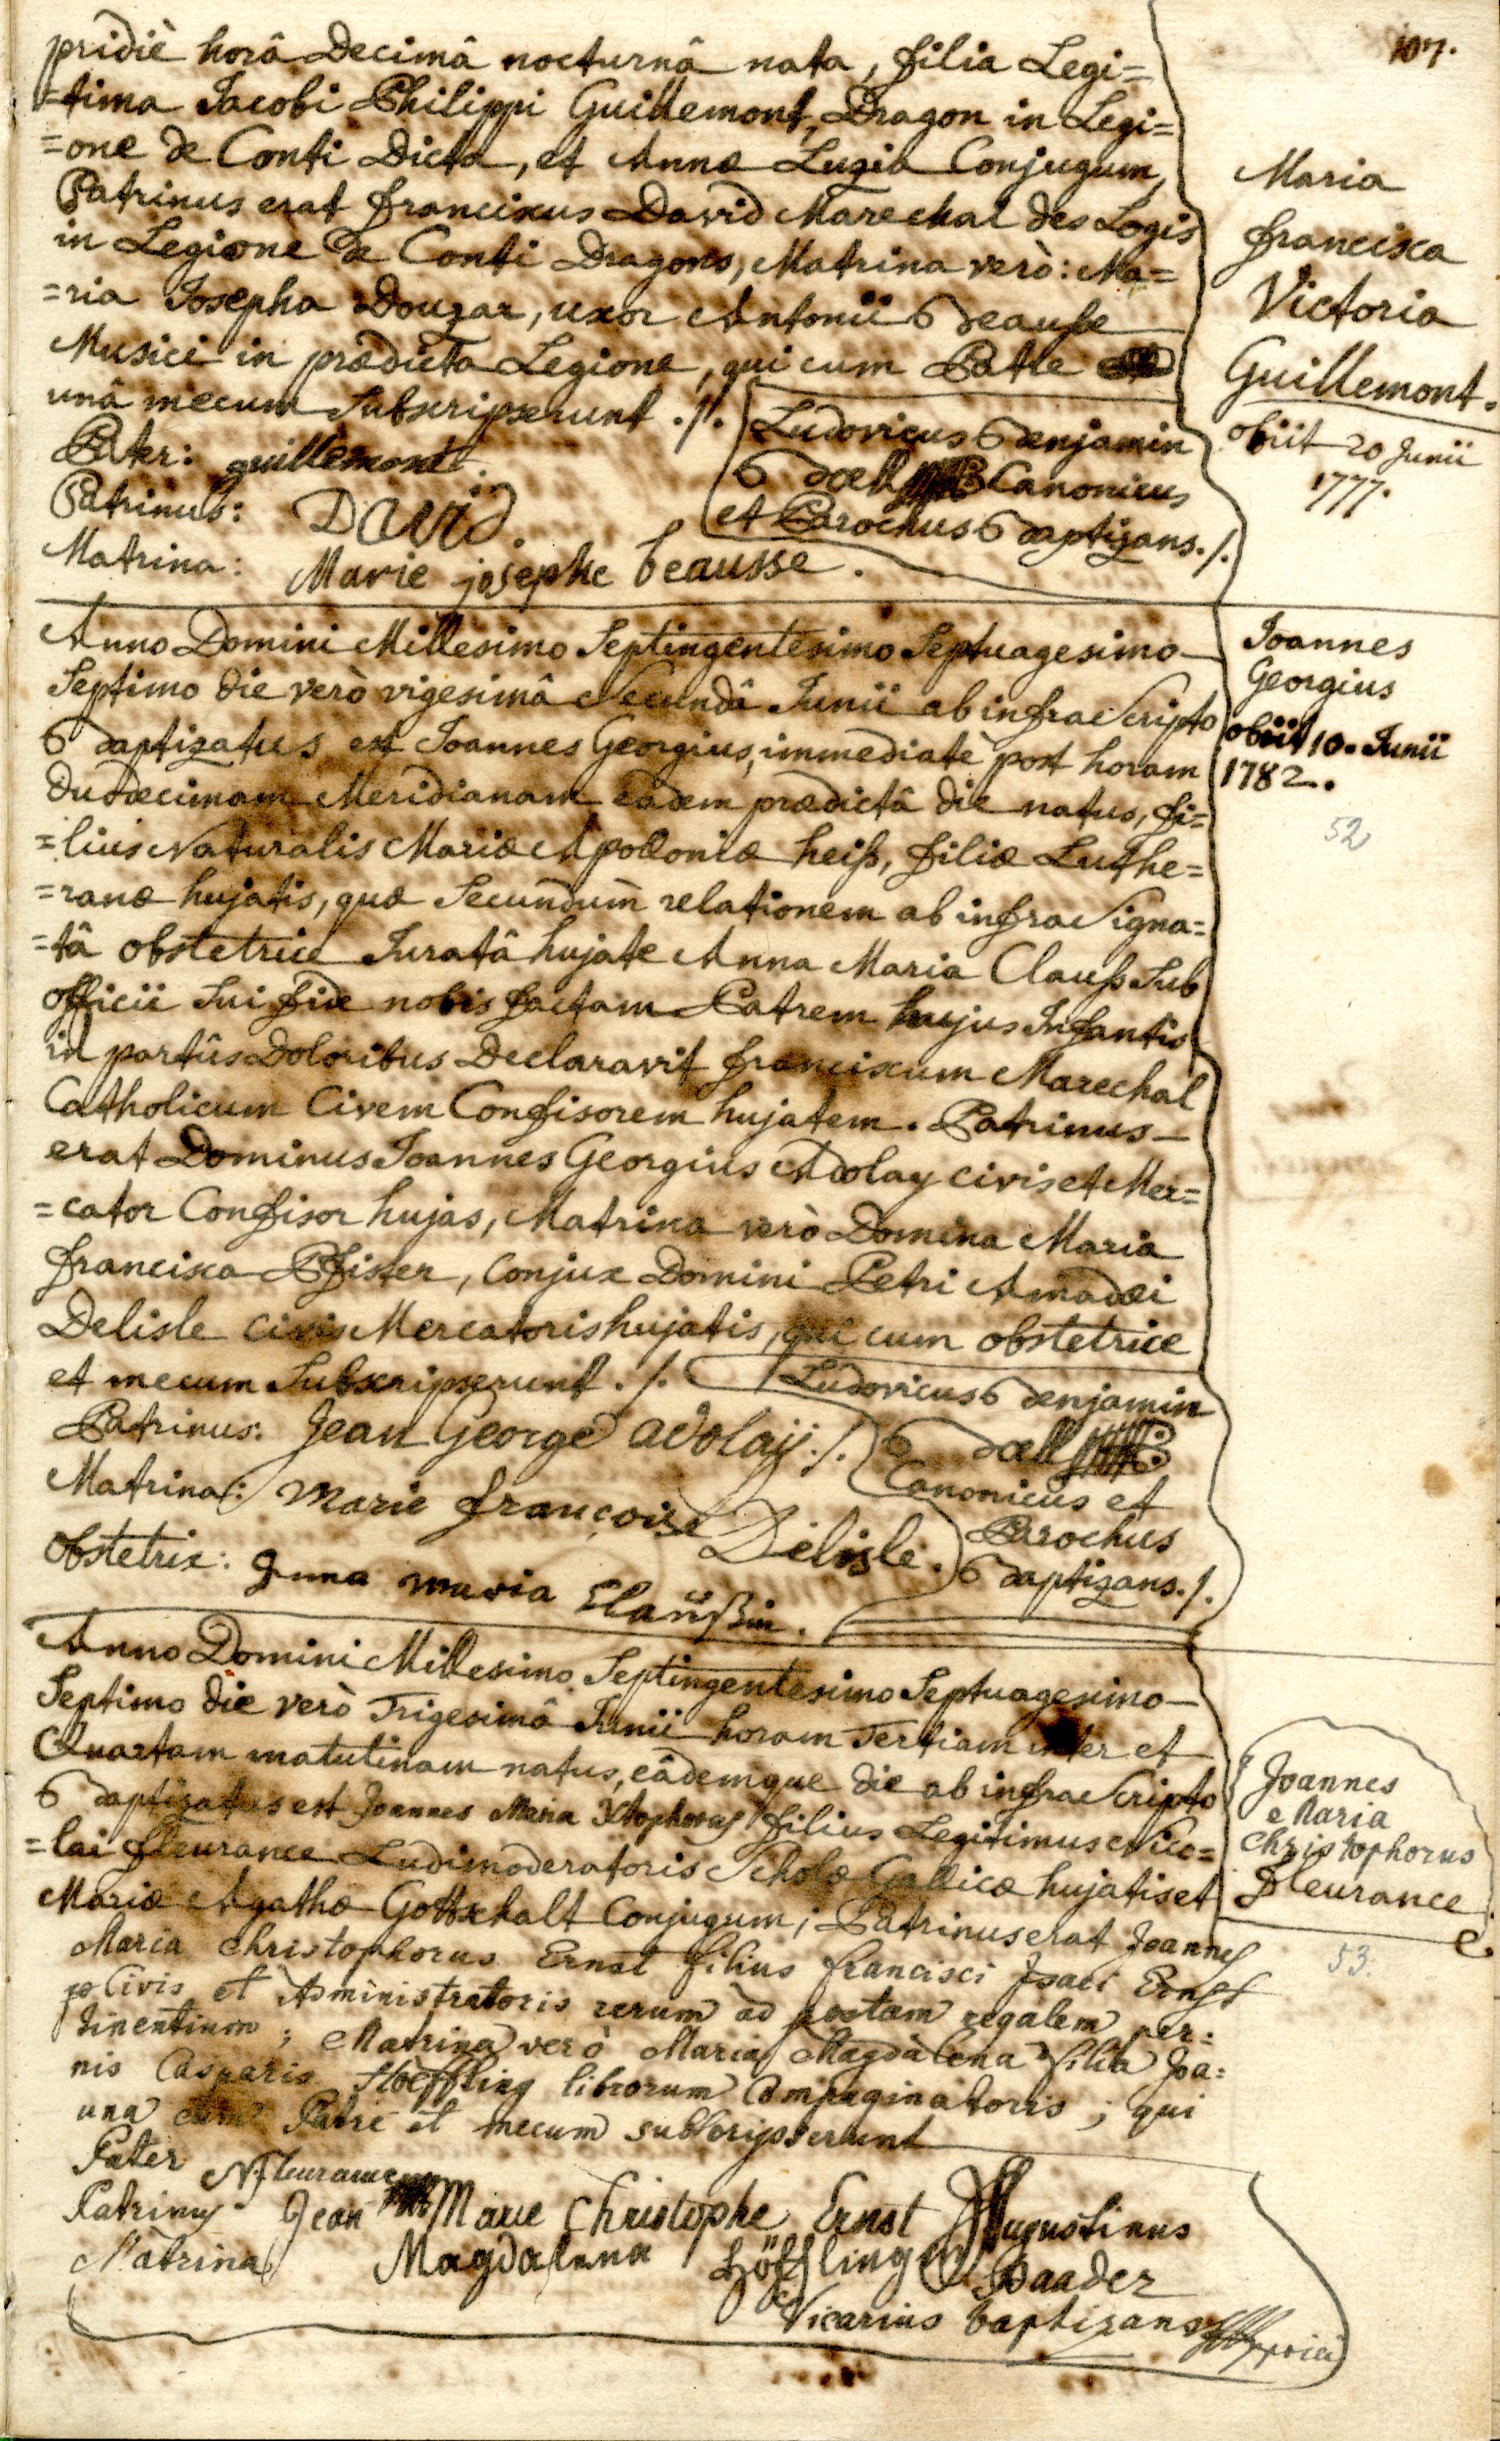 107.
pridiè horâ Decimâ nocturnâ nata, filia Legi=
=tima Jacobi Philippi Guillemont, Dragon in Legi=
=one de Conti Dicta, et Annæ Lugia Conjugum,
Patrinus erat franciscus David Marechal des Logis
in Legione de Conti Dragons, Matrina verò: Ma=
=ria Josepha Douzar, uxor Antonii Beausse
Musici in prædicta Legione, qui cum Patre
unâ mecum Subscripserunt ./.
Pater: guillemont.
Patrinus: David.
Matrina: Marie josephe beausse.
Ludovicus Benjamin
Boell Canonicus
et Parochus Baptizans./.
Maria
francisca
Victoria
Guillemont.
obiit 20 Junii
1777.
Anno Domini Millesimo Septingentesimo Septuagesimo
Septimo die verò vigesimâ Secundâ Junii ab infra Scripto
Baptizatus est Joannes Georgius, immediatè post horam
Duodecimam Meridianam eâdem prædictâ die natus, fi=
=lius Naturalis Mariæ Apolloniæ heiß, filiæ Luthe=
=ranæ hujatis, quæ Secundùm relationem ab infra Signa=
=tâ obstetrice Juratâ hujate Anna Maria Clauß Sub
officii Sui fide nobis factam Patrem hujus Infantis
in partûs Doloribus Declaravit franciscum Marechal
Catholicum Civem Confisorem hujatem. Patrinus
erat Dominus Joannes Georgius Adolay civis et Mer=
=cator Confisor hujas, Matrina verò Domina Maria
francisca Pfister, Conjux Domini Petri Amadæi
Delisle civis Mercatoris hujatis, qui cum obstetrice
et mecum Subscripserunt ./.
Patrinus: Jean George adolaÿ./.
Matrina: Marie françoise Delisle.
Obstetrix: Anna maria Claüßin.
Ludovicus Benjamin
Boell
Canonicus et
Parochus
Baptizans./.
Joannes
Georgius
obiit 10. Junii
1782.
52
Anno Domini Millesimo Septingentesimo Septuagesimo
Septimo die verò Trigesimâ Junii horam Tertiam inter et
Quartam matutinam natus, eâdemque die ab infra Scripto
Baptizatus est Joannes Maria Xtophorus filius Legitimus Nico=
=lai fleurance Ludimoderatoris Scholæ Gallicæ hujatis et
Mariæ Agathæ Gottschalt Conjugum; Patrinus erat Joannes
Maria Christophorus Ernst filius francisci Isaci Ernst
Civis et Administratoris rerum ad postam regalem per=
tinentium; Matrina verò Maria Magdalena filia Joa=
nis Casparis Hoeffling librorum Compaginatoris; qui
una cum Patre et mecum subscripserunt
Pater N. fleurance
Patrinus Jean Marie Christophe Ernst
Matrina Magdalena Höffling
Augustinus
Baader
Vicarius baptizans
Joannes
Maria
Christophorus
Fleurance
53.